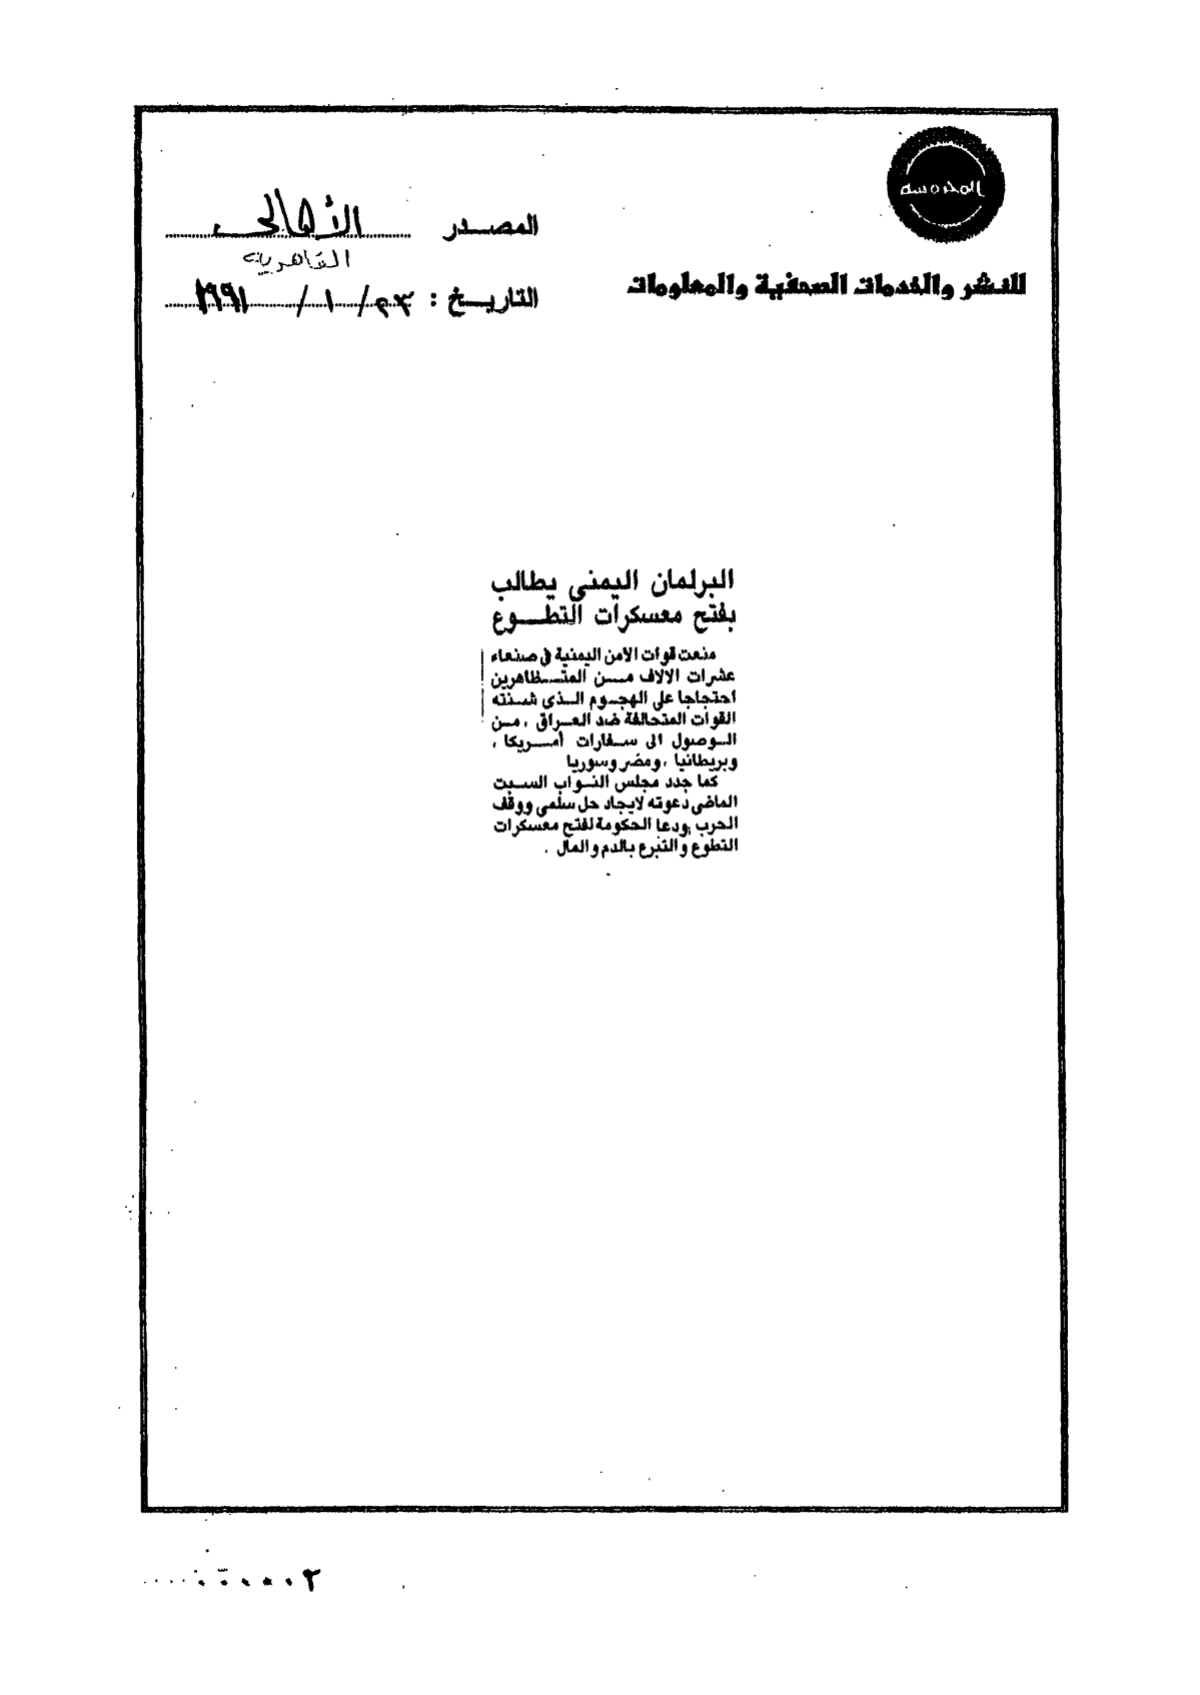 المحروسه
للنشر والخدمات الصحفية والمعلومات
المصدر الأهالى
القاهرية
التاريخ : ٢٣ / ١ / ١٩٩١
البرلمان اليمنى يطالب
بفتح معسكرات التطوع
منعت قوات الامن اليمنية فى صنعاء
عشرات الالاف من المتظاهرين
احتجاجا على الهجوم الذى شنته
القوات المتحالفة ضد العراق ، من
الوصول الى سفارات أمريكا ،
وبريطانيا ، ومصر وسوريا
كما جدد مجلس النواب السبت
الماضى دعوته لايجاد حل سلمى ووقف
الحرب ودعا الحكومة لفتح معسكرات
التطوع والتبرع بالدم والمال .